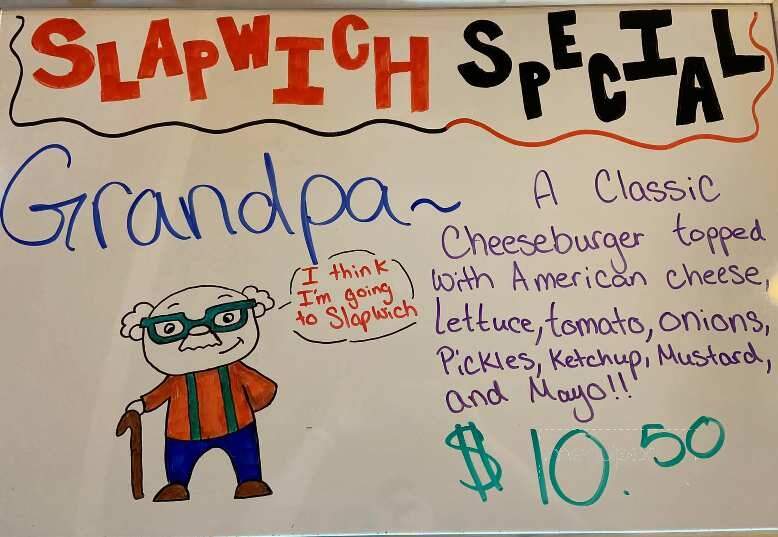 SLAPWICH SPECIAL
Grandpa~
A Classic
Cheeseburger topped
with American cheese,
lettuce, tomato, onions,
Pickles, Ketchup, Mustard,
and Mayo!!
$10.50
I think
I'm going
to Slapwich